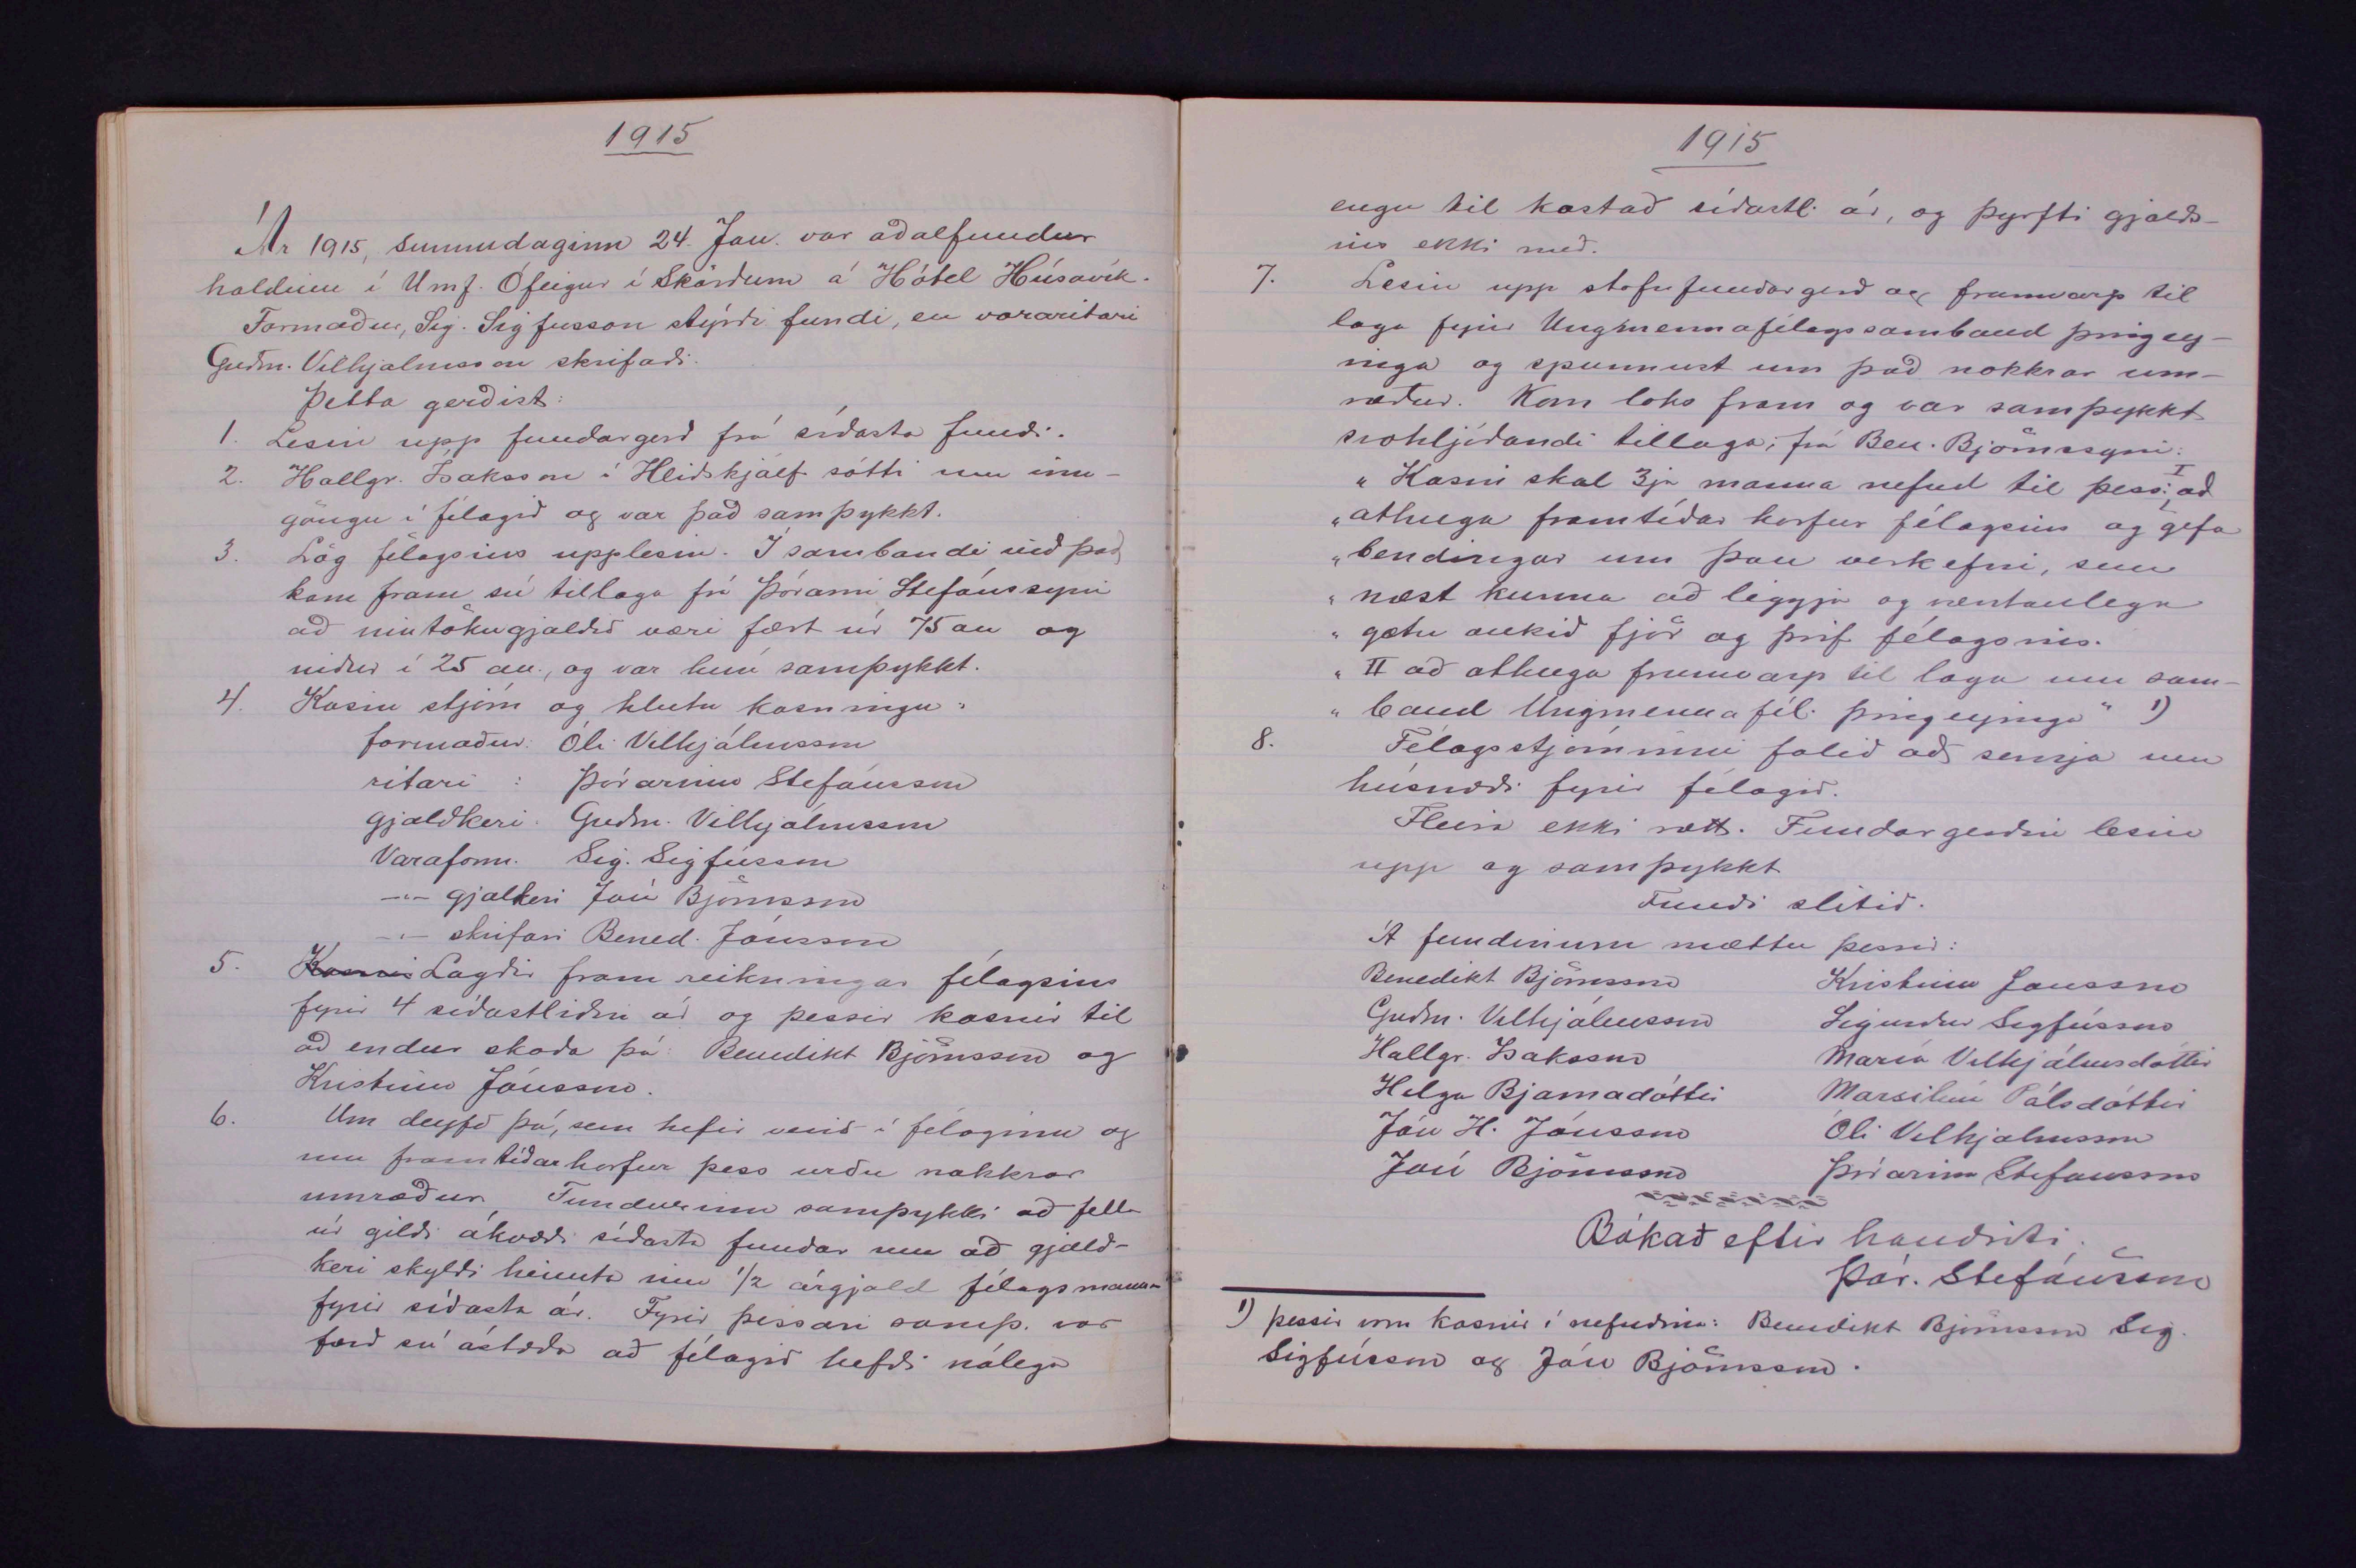 1915
Ár 1915, sunnudaginn 24. Jan. var aðalfundur
haldinn í Umf. Ófeigur í Skörðum á Hótel Húsavík.
Formaður, Sig. Sigfusson stýrði fundi, en vararitari
Guðm. Vilhjalmsson skrifaði.
Þetta gerðist:
1. Lesin upp fundargerð frá síðasta fundi.
2. Hallgr. Ísaksson í Hliðskjálf sótti um inn-
göngu í félagið og var það samþykkt.
3. Lög félagsins upplesin. Í sambandi við það
kom fram sú tillaga frá Þórarni Stefánssyni
að inntökugjaldið væri fært úr 75 au og
niður í 25 au., og var hún samþykkt.
4. Kosin stjórn og hlutu kosningu:
formaður: Óli Vilhjálmsson
ritari : Þórarinn Stefánsson
gjaldkeri. Guðm. Vilhjálmsson
Varaform. Sig. Sigfússon
-"- gjalkeri Jón Björnsson
-"- skrifari Bened. Jónsson
5. Kosnir Lagðir fram reikningar félagsins
fyrir 4 síðastliðin ár og þessir kosnir til
að endur skoða þá: Benedikt Björnsson og
Kristinn Jónsson.
6. Um deyfð þá, sem hefir verið í félaginu og
um framtíðarhorfur þess urðu nokkrar
umræður. Fundurinn samþykkti að fella
úr gildi ákvæði síðasta fundar um að gjald-
keri skyldi heimta inn 1/2 árgjald félagsmanna
fyrir síðasta ár. Fyrir þessari samþ. var
færð sú ástæða að félagið hefði nálega
1915
engu til kostað síðastl. ár, og þyrfti gjalds-
ins ekki með.
7. Lesin upp stofnfundargerð og frumvarp til
laga fyrir Ungmennafélagssamband þingey-
inga og spunnust um það nokkrar um-
ræður. Kom loks fram og var samþykkt
svohljóðandi tillaga, frá Ben. Björnssyni:
„ Kosin skal 3ja manna nefnd til þess: I að
„ athuga framtíðar horfur félagsins og gefa
„ bendingar um þau verkefni, sem
„ næst kunna að liggja og væntanlega
„ gætu aukið fjör og þrif félagsins.
„ II að athuga frumvarp til laga um sam-
„ band Ungmennafél. þingeyinga" 1)
8. Félagsstjórninni falið að semja um
húsnæði fyrir félagið.
Fleira ekki rætt. Fundargerðin lesin
upp og samþykkt
Fundi slitið.
Á fundinum mættu þessir:
Benedikt Björnsson Kristinn Jonsson
Guðm. Vilhjálmsson Sigurður Sigfússon
Hallgr. Ísaksson María Vilhjálmsdóttir
Helga Bjarnadóttir Marsilín Pálsdóttir
Jón H. Jónsson Óli Vilhjalmsson
Jón Björnsson Þórarinn Stefansson
Bókað eftir handriti.
Þór. Stefánsson
1) þessir voru kosnir í nefndina: Benedikt Björnsson Sig.
Sigfússon og Jón Björnsson.